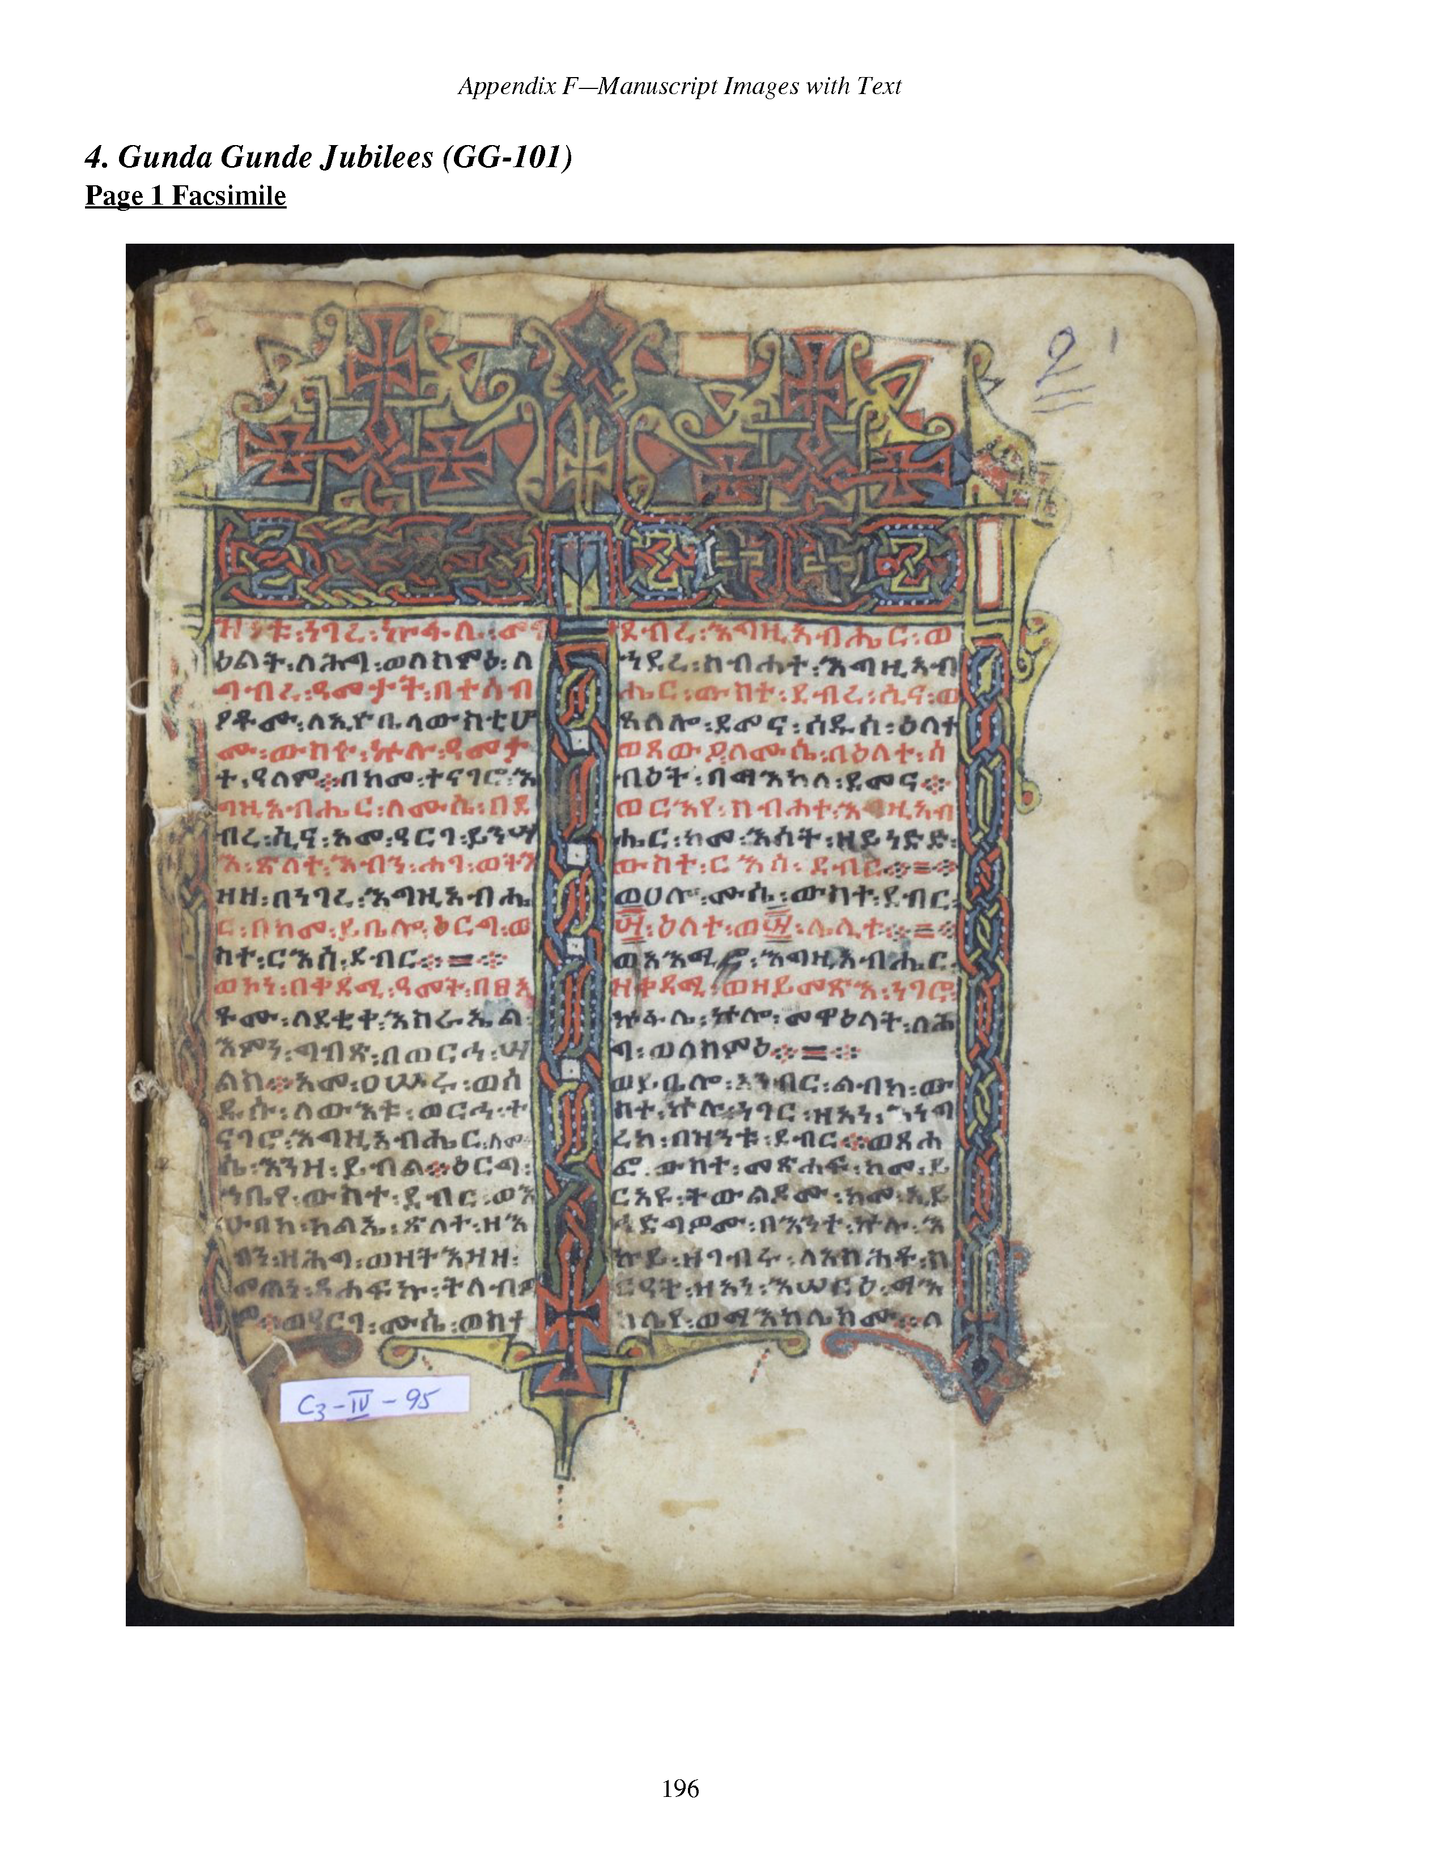 Appendix F—Manuscript Images with Text
4. Gunda Gunde Jubilees (GG-101)
Page 1 Facsimile
2 1
ዝንቱ፡ነገረ፡ኵፋሌ፡
ዕልት፡ለሕግ፡ወለስምዕ፡ለ
ግብረ፡ዓመታት፡በተሰብ
ዖቶሙ፡ለኢዮቤላውስቲሆ
ሙ፡ውስተ፡ኵሉ፡ዓመታ
ተ፡ዓለም፨በከመ፡ተናገሮ፡እ
ግዚአብሔር፡ለሙሴ፡በደ
ብረ፡ሲና፡አመ፡ዓርገ፡ይንሣ
እ፡ጽላተ፡እብን፡ሕገ፡ወትእ
ዛዘ፡በነገረ፡እግዚአብሔ
ር፡በከመ፡ይቤሎ፡ዕርግ፡ው
ስተ፡ርእሰ፡ደብር፨=፨
ወኮነ፡በቀዳሚ፡ዓመት፡በፀአ
ቶሙ፡ለደቂቀ፡እስራኤል፡
እምን፡ግብጽ፡በወርኅ፡ሣ
ልስ፨አመ፡ዐሡሩ፡ወሰ
ዱሱ፡ለውእቱ፡ወርኅ፡ተ
ናገሮ፡እግዚአብሔር፡ለሙ
ሴ፡እንዘ፡ይብል፨ዕርግ፡
ኀቤየ፡ውስተ፡ደብር፡ወእ
ሁበከ፡ክልኤ፡ጽላተ፡ዘእ
ብን፡ዘሕግ፡ወዘትእዛዝ፡
መጠነ፡ጸሐፍኩ፡ታለብዎ
ሙ፡ወዓርገ፡ሙሴ፡ውስተ
ደብረ፡እግዚአብሔር፡ወ
ኀደረ፡ስብሐተ፡እግዚአብ
ሔር፡ውስተ፡ደብረ፡ሲና፡ወ
ጸለሎ፡ደመና፡ሰዱሰ፡ዕለተ
ወጸውዖ፡ለሙሴ፡በዕለት፡ሳ
ብዕት፡በማእከለ፡ደመና፨
ወርእየ፡ስብሐተ፡እግዚአብ
ሔር፡ከመ፡እሳት፡ዘይነድድ፡
ውስተ፡ርእሰ፡ደብር፨=፨
ወሀሎ፡ሙሴ፡ውስተ፡ደብር፡
፵፡ዕለተ፡ወ፵፡ሌሊተ፨=፨
ወአእሚሮ፡እግዚአብሔር፡
ዘቀዳሚ፡ወዘይመጽእ፡ነገሮ፡
ኵፋሌ፡ኵሎ፡መዋዕላት፡በሕ
ግ፡ወለስምዕ፨=፨
ወይቤሎ፡አንብር፡ልብከ፡ው
ስተ፡ኵሉ፡ነገር፡ዘአነ፡እነግ
ረከ፡በዝንቱ፡ደብር፨ወጸሐ
ፎ፡ውስተ፡መጽሐፍ፡ከመ፡ይ
ርአዩ፡ትውልዶሙ፡ከመ፡ኢይ
ኀድግዎሙ፡በእንተ፡ኵሉ፡እ
ኩይ፡ዘገብሩ፡ለአስሕቶ፡ሥ
ርዓት፡ዘአነ፡እሠርዕ፡ማእ
ከሌየ፡ወማእከሌከሙ፡፡ለ
C3-IV-95
196